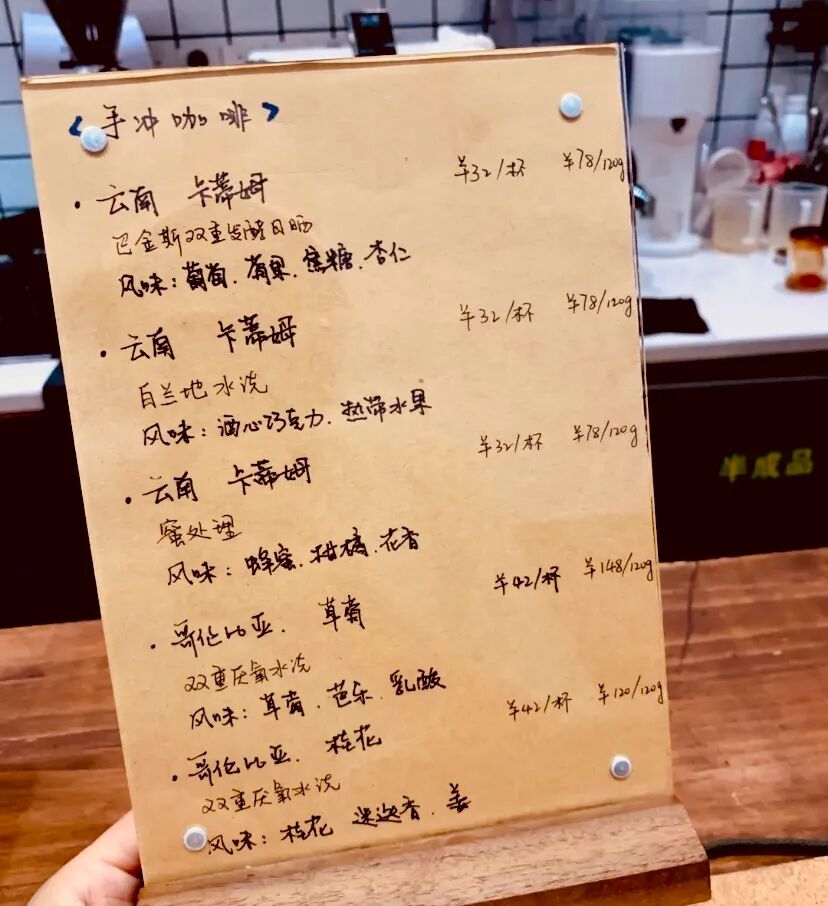 <手冲咖啡>
· 云南 卡蒂姆 ¥32/杯 ¥78/120g
巴金斯双重发酵日晒
风味：葡萄.莓果.焦糖.杏仁
· 云南 卡蒂姆 ¥32/杯 ¥78/120g
白兰地水洗
风味：酒心巧克力.热带水果
· 云南 卡蒂姆 ¥32/杯 ¥78/120g
蜜处理
风味：蜂蜜.柑橘.花香
· 哥伦比亚. 草莓 ¥42/杯 ¥148/120g
双重厌氧水洗
风味：草莓.芭乐.乳酸
· 哥伦比亚. 桂花 ¥42/杯 ¥120/120g
双重厌氧水洗
风味：桂花 迷迭香.姜
半成品